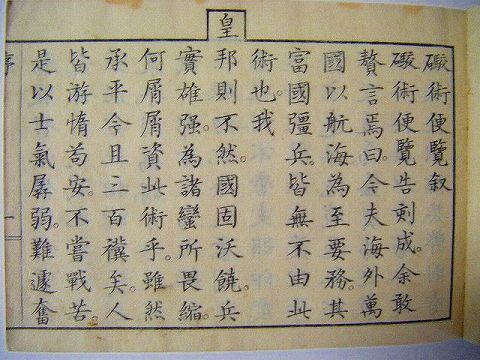 礮術便覽叙
礮術便覽告刻成。余敢
贅言焉。曰。今夫海外萬
國以航海為至要務。其
富國彊兵。皆無不由此
術也。我
皇
邦則不然。國固沃饒。兵
實雄强。為諸蠻所畏縮。
何屑屑資此術乎。雖然
承平今且三百禩矣。人
皆游惰苟安。不嘗戰苦。
是以士氣孱弱。難遽奮
序
一